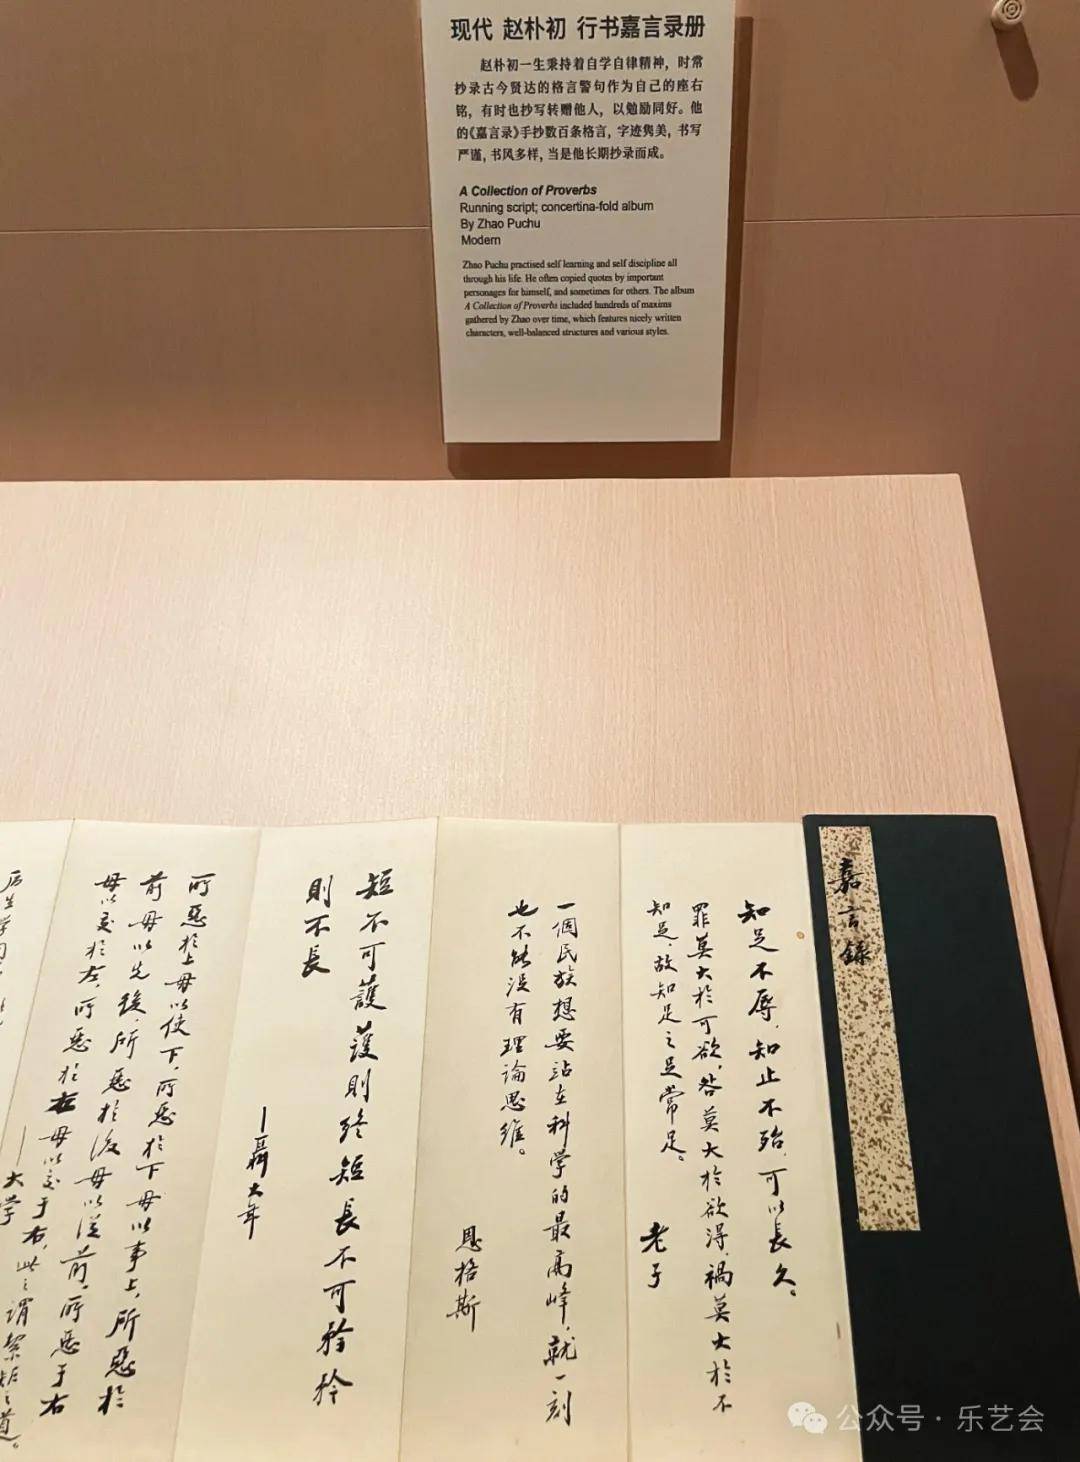 现代 赵朴初 行书嘉言录册
赵朴初一生秉持着自学自律精神，时常
抄录古今贤达的格言警句作为自己的座右
铭，有时也抄写转赠他人，以勉励同好。他
的《嘉言录》手抄数百条格言，字迹隽美，书写
严谨，书风多样，当是他长期抄录而成。
A Collection of Proverbs
Running script; concertina-fold album
By Zhao Puchu
Modern
Zhao Puchu practised self learning and self discipline all
through his life. He often copied quotes by important
personages for himself, and sometimes for others. The album
A Collection of Proverbs included hundreds of maxims
gathered by Zhao over time, which features nicely written
characters, well-balanced structures and various styles.
嘉言録
知足不辱，知止不殆，可以長久。
罪莫大於可欲，咎莫大於欲得，禍莫大於不
知足，故知足之足常足。
老子
一個民族想要站在科学的最高峰，就一刻
也不能没有理論思维。
恩格斯
短不可護護則终短長不可矜矜
則不長
—聶大年
所惡於上毋以使下，所惡於下毋以事上，所惡於
前毋以先後，所惡於後毋以從前，所惡于右
毋以交於左，所惡於左毋以交于右，此之謂絜矩之道。
——大学
公众号·乐艺会